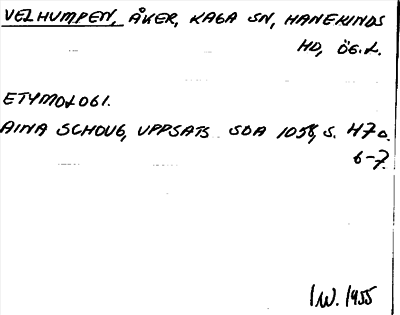 VELHUMPEN, ÅKER, KAGA SN, HANEKINDS
HD, ÖG.L.
ETYMOLOGI.
AINA SCHOUG, UPPSATS SOA 1058, S. 47 o.
6-7.
IW. 1955